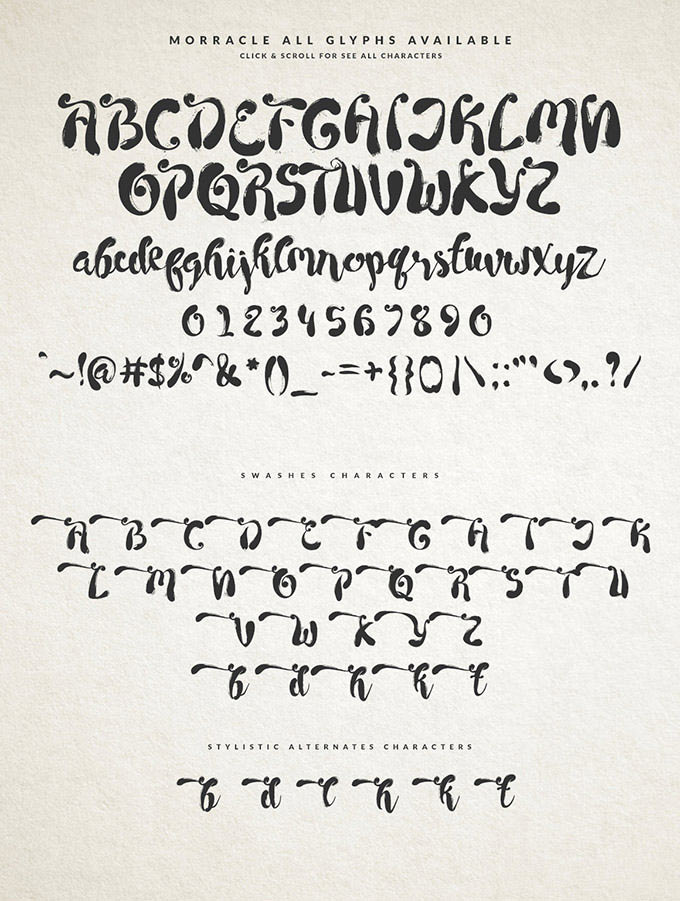 MORRACLE ALL GLYPHS AVAILABLE
CLICK & SCROLL FOR SEE ALL CHARACTERS
ABCDEFGHIJKLMN
OPQRSTUVWXYZ
abcdefghijklmnopqrstuvwxyz
01234567890
`~!@#$%^&*()_-=+{}[]|\;:"'<>,.?/
SWASHES CHARACTERS
A B C D E F G H I J K
L M N O P Q R S T U
V W X Y Z
b d h k t
STYLISTIC ALTERNATES CHARACTERS
b d l h k t